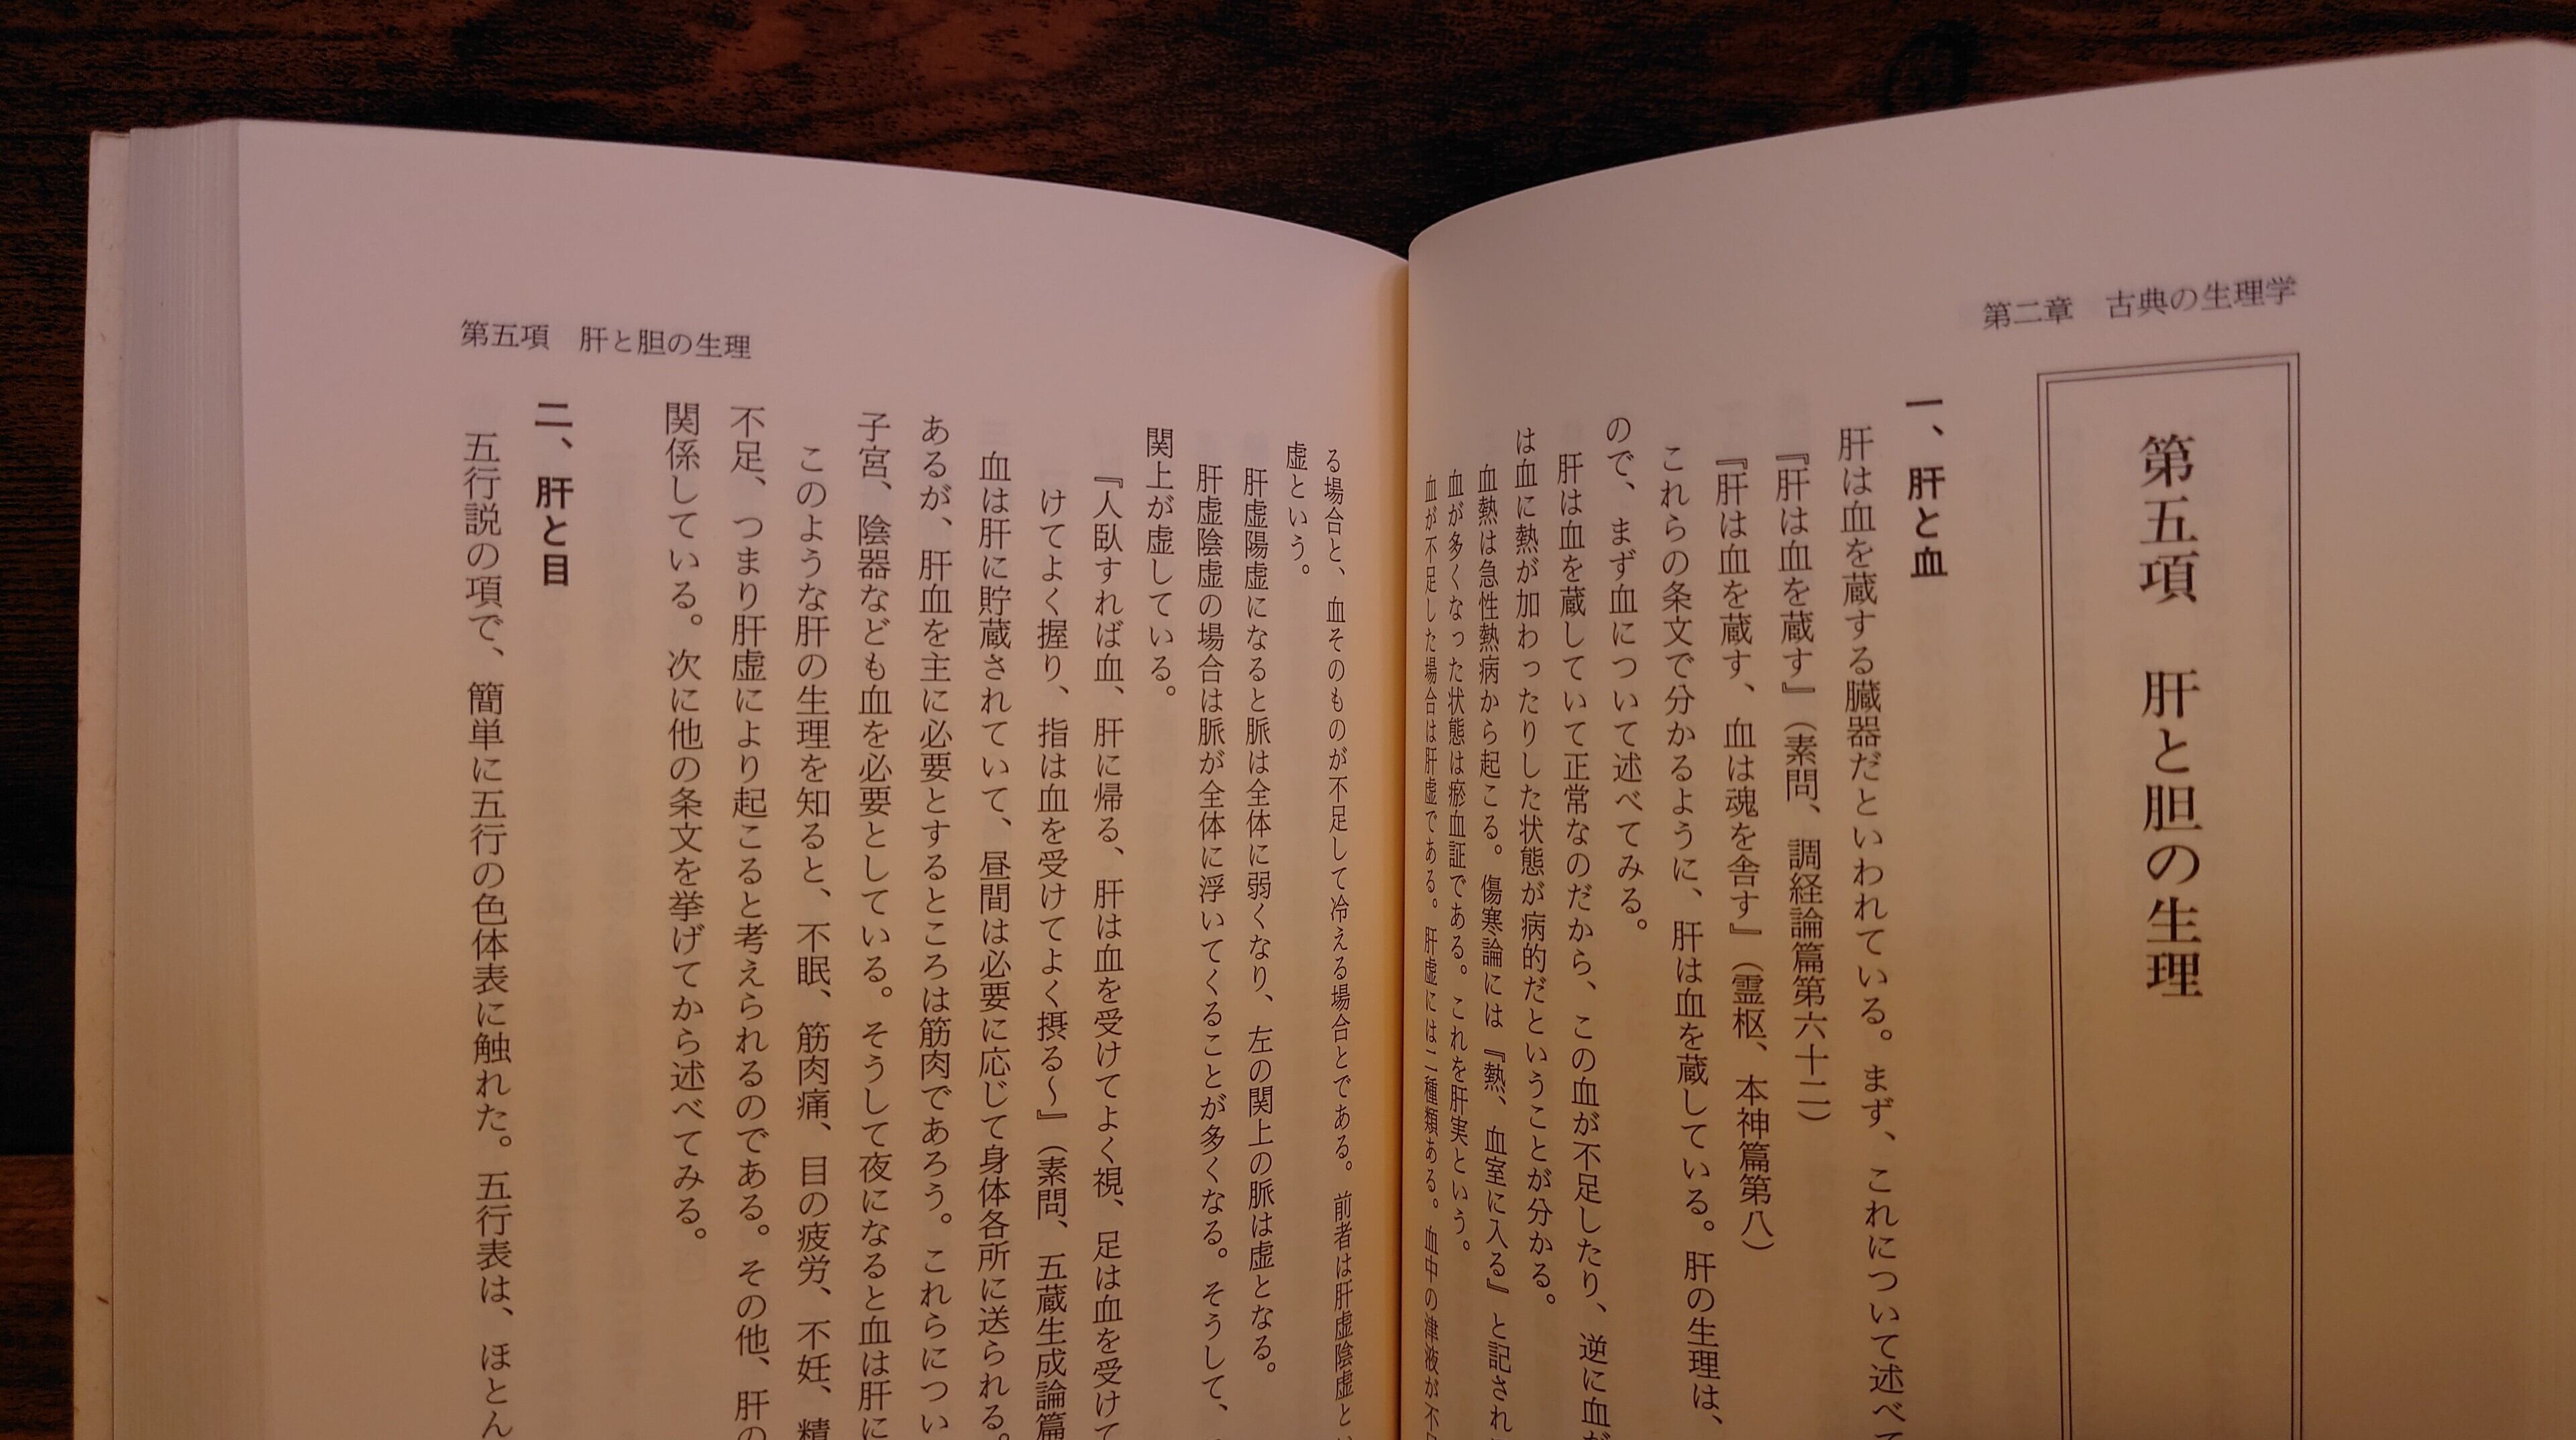 第二章　古典の生理学
第五項　肝と胆の生理
一、肝と血
肝は血を蔵する臓器だといわれている。まず、これについて述べて
『肝は血を蔵す』（素問、調経論篇第六十二）
『肝は血を蔵す、血は魂を舎す』（霊枢、本神篇第八）
これらの条文で分かるように、肝は血を蔵している。肝の生理は、
ので、まず血について述べてみる。
肝は血を蔵していて正常なのだから、この血が不足したり、逆に血が
は血に熱が加わったりした状態が病的だということが分かる。
血熱は急性熱病から起こる。傷寒論には『熱、血室に入る』と記され
血が多くなった状態は瘀血証である。これを肝実という。
血が不足した場合は肝虚である。肝虚には二種類ある。血中の津液が不
第五項　肝と胆の生理
る場合と、血そのものが不足して冷える場合とである。前者は肝虚陰虚と
虚という。
肝虚陽虚になると脈は全体に弱くなり、左の関上の脈は虚となる。
肝虚陰虚の場合は脈が全体に浮いてくることが多くなる。そうして、
関上が虚している。
『人臥すれば血、肝に帰る、肝は血を受けてよく視、足は血を受けて
けてよく握り、指は血を受けてよく摂る～』（素問、五蔵生成論篇
血は肝に貯蔵されていて、昼間は必要に応じて身体各所に送られる。
あるが、肝血を主に必要とするところは筋肉であろう。これらについ
子宮、陰器なども血を必要としている。そうして夜になると血は肝に
このような肝の生理を知ると、不眠、筋肉痛、目の疲労、不妊、精
不足、つまり肝虚により起こると考えられるのである。その他、肝の
関係している。次に他の条文を挙げてから述べてみる。
二、肝と目
五行説の項で、簡単に五行の色体表に触れた。五行表は、ほとん